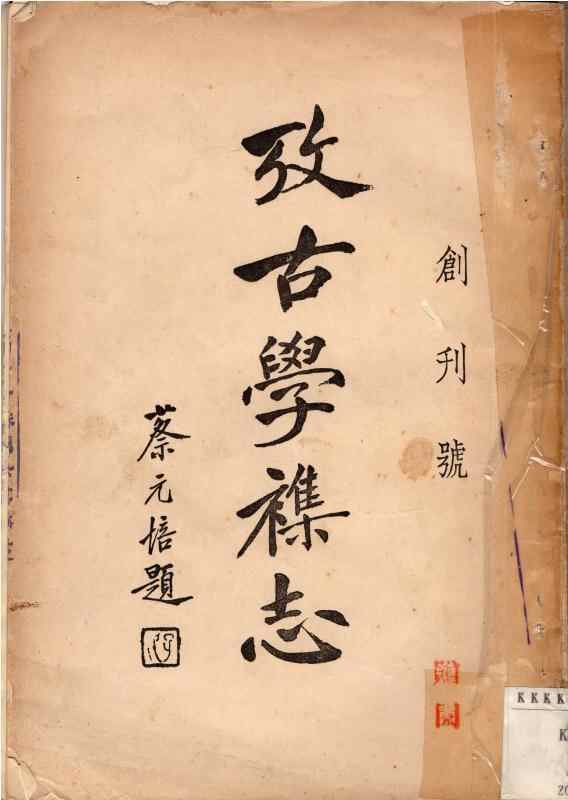 創刊號
攷古學襍志
蔡元培題
K K K K
K
20